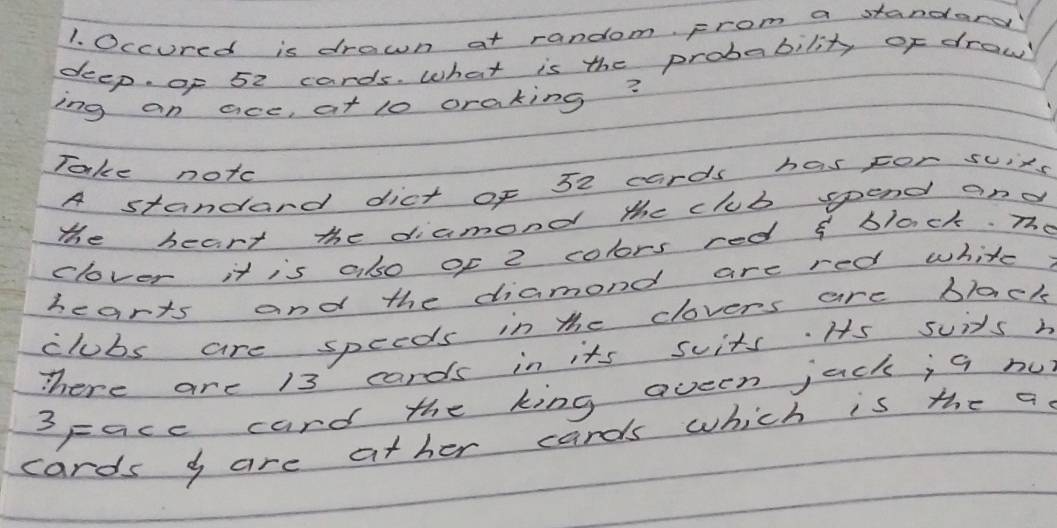 1. Occured is drawn at random. From a standard
deep. of 52 cards. what is the probability of draw
ing an ace, at 10 oraking ?
Take note
A standard dict of 52 cards has for suits
the heart the diamond the club spend and
clover it is also of 2 colors red & black. The
hearts and the diamond are red white
clubs are speeds in the clovers are black
There are 13 cards in its suits. Its suits h
3 Face card the king queen jack ; 9 nu
cards & are at her cards which is the a